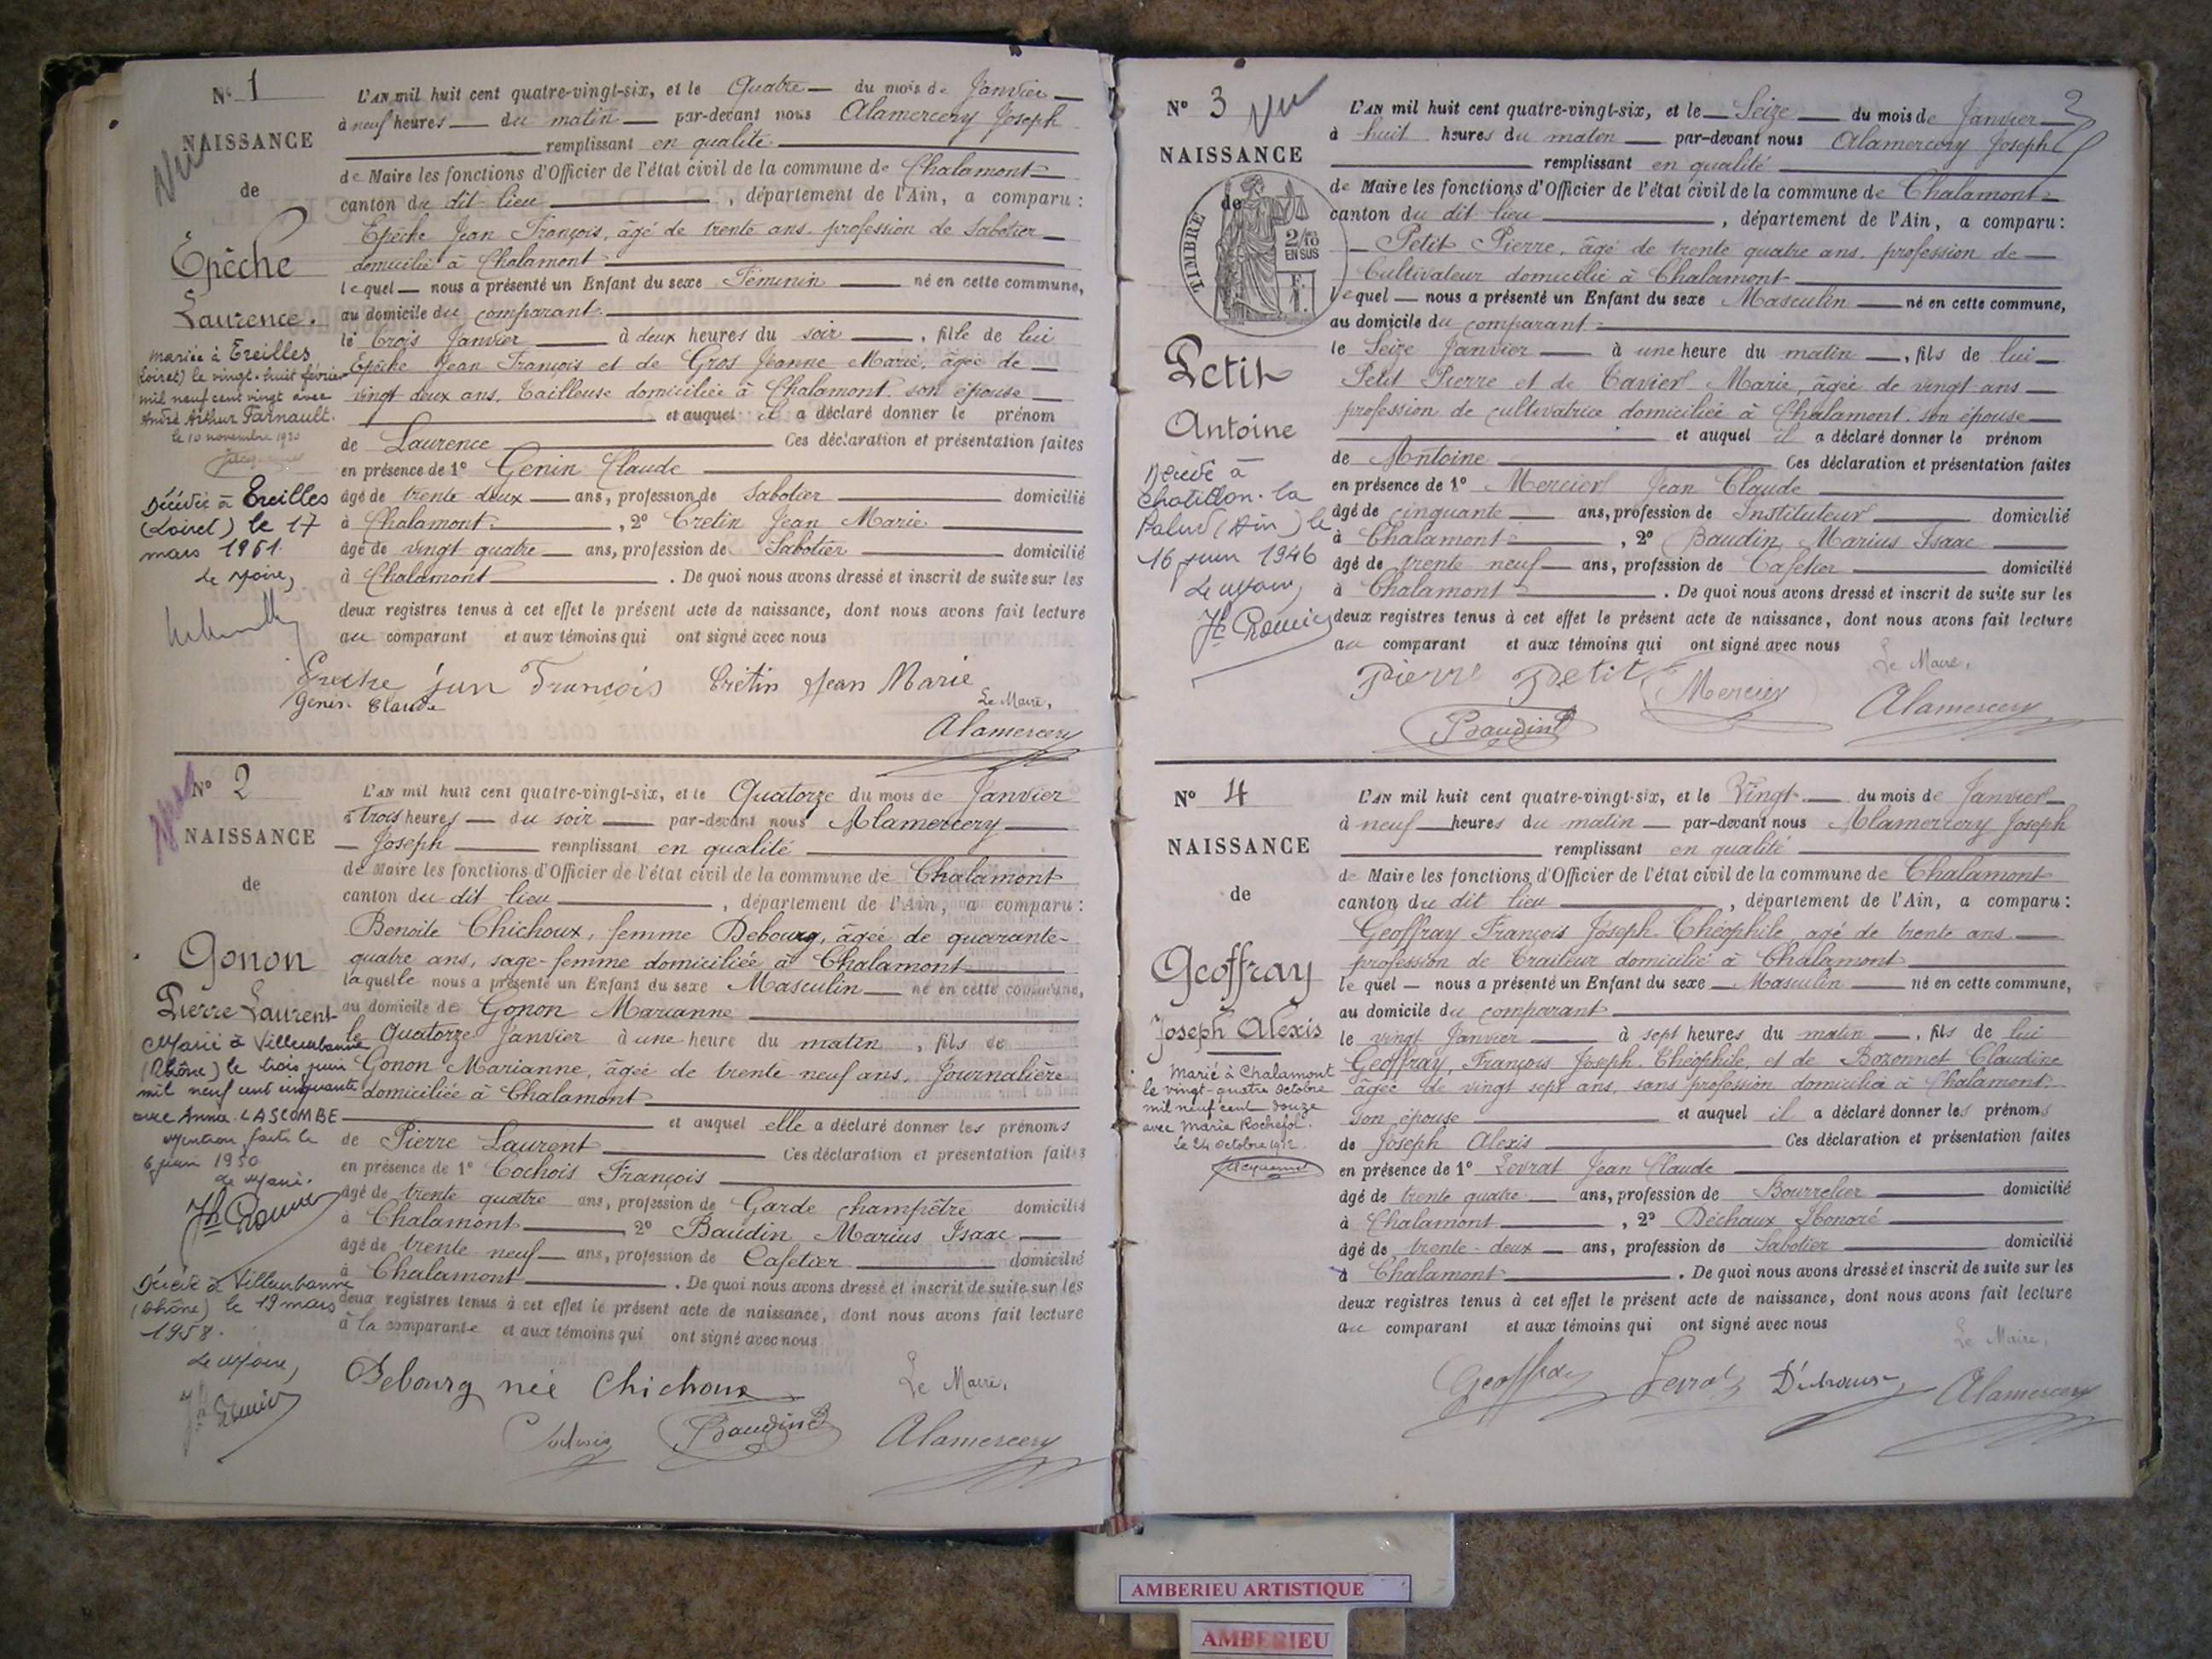 N° 1
NAISSANCE
de
Epêche
Laurence.
mariée à Treilles
(Loiret) le vingt-huit février
mil neuf cent vingt avec
André Arthur Farnault.
le 10 novembre 1920
Décédée à Treilles
(Loiret) le 17
mars 1961.
Le Maire,
L'AN mil huit cent quatre-vingt-six, et le Quatre du mois de Janvier
à neuf heures du matin par-devant nous Alamercery Joseph
remplissant en qualité
de Maire les fonctions d'Officier de l'état civil de la commune de Chalamont
canton du dit lieu, département de l'Ain, a comparu :
Epêche Jean François, âgé de trente ans, profession de Sabotier
domicilié à Chalamont
lequel nous a présenté un Enfant du sexe Féminin né en cette commune,
au domicile du comparant
le trois Janvier à deux heures du soir, fille de lui
Epêche Jean François et de Gros Jeanne Marie, âgée de
vingt deux ans, Tailleuse domiciliée à Chalamont son épouse
et auquel il a déclaré donner le prénom
de Laurence Ces déclaration et présentation faites
en présence de 1° Genin Claude
âgé de trente deux ans, profession de Sabotier domicilié
à Chalamont, 2° Cretin Jean Marie
âgé de vingt quatre ans, profession de Sabotier domicilié
à Chalamont. De quoi nous avons dressé et inscrit de suite sur les
deux registres tenus à cet effet le présent acte de naissance, dont nous avons fait lecture
au comparant et aux témoins qui ont signé avec nous
Epeche jan François Crétin Jean Marie
Genin Claude
Le Maire,
Alamercery
N° 2
NAISSANCE
de
Gonon
Pierre Laurent
Marié à Villeurbanne
(Rhône) le trois juin
mil neuf cent cinquante
avec Anna LASCOMBE
Mention faite le
6 juin 1950
Le Maire.
Décédé à Villeurbanne
(Rhône) le 19 mars
1958.
Le Maire,
L'AN mil huit cent quatre-vingt-six, et le Quatorze du mois de Janvier
à trois heures du soir par-devant nous Alamercery
Joseph remplissant en qualité
de Maire les fonctions d'Officier de l'état civil de la commune de Chalamont
canton du dit lieu, département de l'Ain, a comparu :
Benoite Chichoux, femme Debourg, âgée de quarante-
quatre ans, sage-femme domiciliée à Chalamont
laquelle nous a présenté un Enfant du sexe Masculin né en cette commune,
au domicile de Gonon Marianne
le Quatorze Janvier à une heure du matin, fils de
Gonon Marianne, âgée de trente-neuf ans, Journalière
domiciliée à Chalamont
et auquel elle a déclaré donner les prénoms
de Pierre Laurent Ces déclaration et présentation faites
en présence de 1° Cochois François
âgé de trente quatre ans, profession de Garde champêtre domicilié
à Chalamont 2° Baudin Marius Isaac
âgé de trente neuf ans, profession de Cafetier domicilié
à Chalamont. De quoi nous avons dressé et inscrit de suite sur les
deux registres tenus à cet effet le présent acte de naissance, dont nous avons fait lecture
à la comparante et aux témoins qui ont signé avec nous
Debourg née Chichoux
Le Maire,
Baudin Alamercery
N° 3 Vu
NAISSANCE
de
TIMBRE
2/10
EN SUS
Petit
Antoine
Décédé à
Chatillon-la
Palud (Ain) le
16 juin 1946
Le Maire,
2
L'AN mil huit cent quatre-vingt-six, et le Seize du mois de Janvier
à huit heures du matin par-devant nous Alamercery Joseph
remplissant en qualité
de Maire les fonctions d'Officier de l'état civil de la commune de Chalamont
canton du dit lieu, département de l'Ain, a comparu :
Petit Pierre, âgé de trente quatre ans, profession de
Cultivateur domicilié à Chalamont
lequel nous a présenté un Enfant du sexe Masculin né en cette commune,
au domicile du comparant
le Seize Janvier à une heure du matin, fils de lui
Petit Pierre et de Tavier Marie, âgée de vingt ans
profession de cultivatrice domiciliée à Chalamont son épouse
et auquel il a déclaré donner le prénom
de Antoine Ces déclaration et présentation faites
en présence de 1° Mercier Jean Claude
âgé de cinquante ans, profession de Instituteur domicilié
à Chalamont, 2° Baudin Marius Isaac
âgé de trente neuf ans, profession de Cafetier domicilié
à Chalamont. De quoi nous avons dressé et inscrit de suite sur les
deux registres tenus à cet effet le présent acte de naissance, dont nous avons fait lecture
au comparant et aux témoins qui ont signé avec nous
Le Maire,
Pierre Petit Mercier Alamercery
Baudin
N° 4
NAISSANCE
de
Geoffray
Joseph Alexis
Marié à Chalamont
le vingt-quatre octobre
mil neuf cent douze
avec Marie Rochefol.
Le 24 octobre 1912
L'AN mil huit cent quatre-vingt-six, et le Vingt du mois de Janvier
à neuf heures du matin par-devant nous Alamercery Joseph
remplissant en qualité
de Maire les fonctions d'Officier de l'état civil de la commune de Chalamont
canton du dit lieu, département de l'Ain, a comparu :
Geoffray François Joseph Théophile, agé de trente ans
profession de Traiteur domicilié à Chalamont
le quel nous a présenté un Enfant du sexe Masculin né en cette commune,
au domicile du comparant
le vingt Janvier à sept heures du matin, fils de lui
Geoffray, François Joseph Théophile, et de Bozonnet Claudine
âgée de vingt sept ans, sans profession domiciliée à Chalamont
son épouse et auquel il a déclaré donner les prénoms
de Joseph Alexis Ces déclaration et présentation faites
en présence de 1° Levrat Jean Claude
âgé de trente quatre ans, profession de Bourrelier domicilié
à Chalamont, 2° Déchaux Honoré
âgé de trente-deux ans, profession de Sabotier domicilié
à Chalamont. De quoi nous avons dressé et inscrit de suite sur les
deux registres tenus à cet effet le présent acte de naissance, dont nous avons fait lecture
au comparant et aux témoins qui ont signé avec nous
Le Maire,
Geoffray Levrat Alamercery
AMBERIEU ARTISTIQUE
AMBERIEU